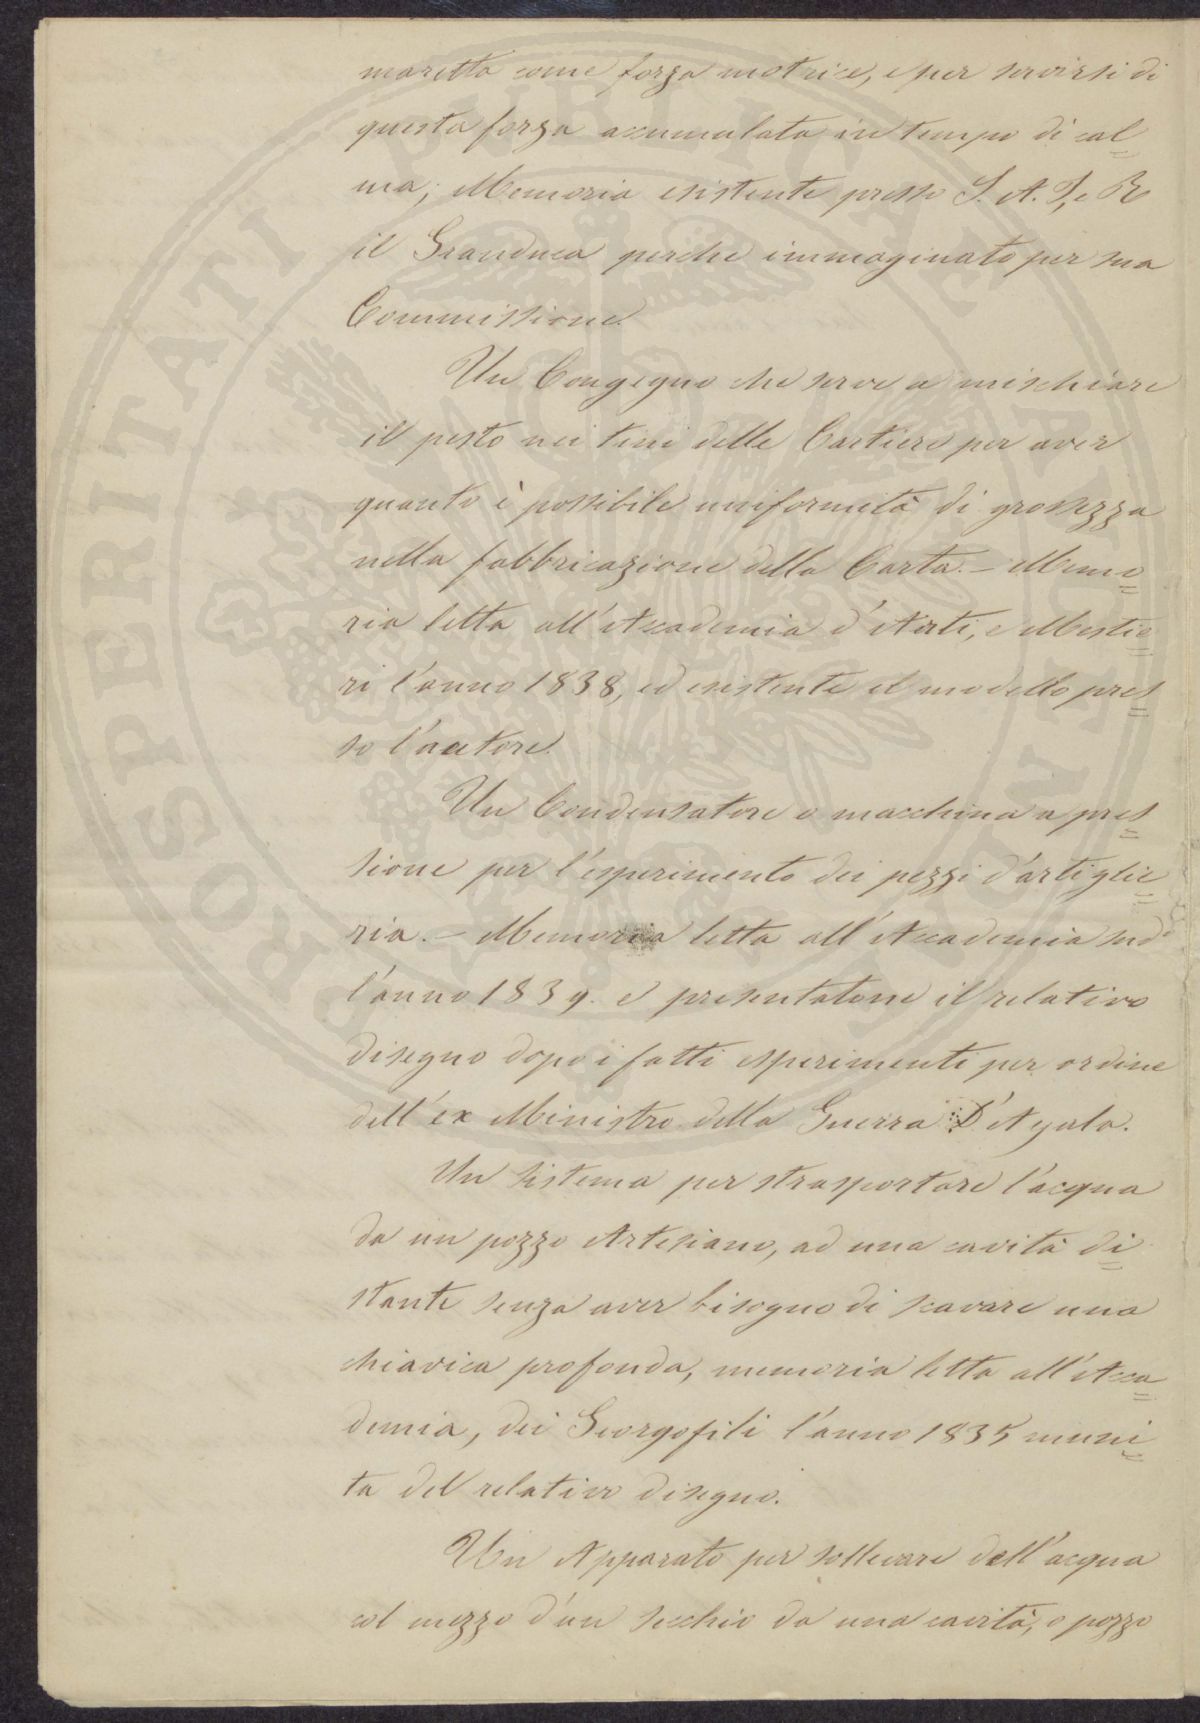 maretta come forza motrice, e per servirsi di
questa forza accumulata in tempo di cal=
ma; Memoria esistente presso S. A. I, e R
il Granduca perche immaginato per sua
Commissione.
Un Congegno che serve a mischiare
il pesto nei tini delle Cartiere per aver
quanto è possibile uniformità di grossezza
nella fabbricazione della Carta. – Memo=
ria letta all'Accademia d'Arti, e Mestie=
ri l'anno 1838, ed esistente il modello pres=
so l'autore.
Un Condensatore o macchina a pres=
sione per l'esperimento dei pezzi d'artiglie=
ria. – Memoria letta all'Accademia sud.a
l'anno 1839. e presentatone il relativo
disegno dopo i fatti esperimenti per ordine
dell'ex Ministro della Guerra D'Ayala.
Un sistema per strasportare l'acqua
da un pozzo Artesiano, ad una cavità di=
stante senza aver bisogno di scavare una
chiavica profonda, memoria letta all'Acca=
demia, dei Georgofili l'anno 1835 muni=
ta del relativo disegno.
Un Apparato per sollevare dell'acqua
col mezzo d'un secchio da una cavità, o pozzo
PROSPERITATI PUBLICAE AUGENDAE